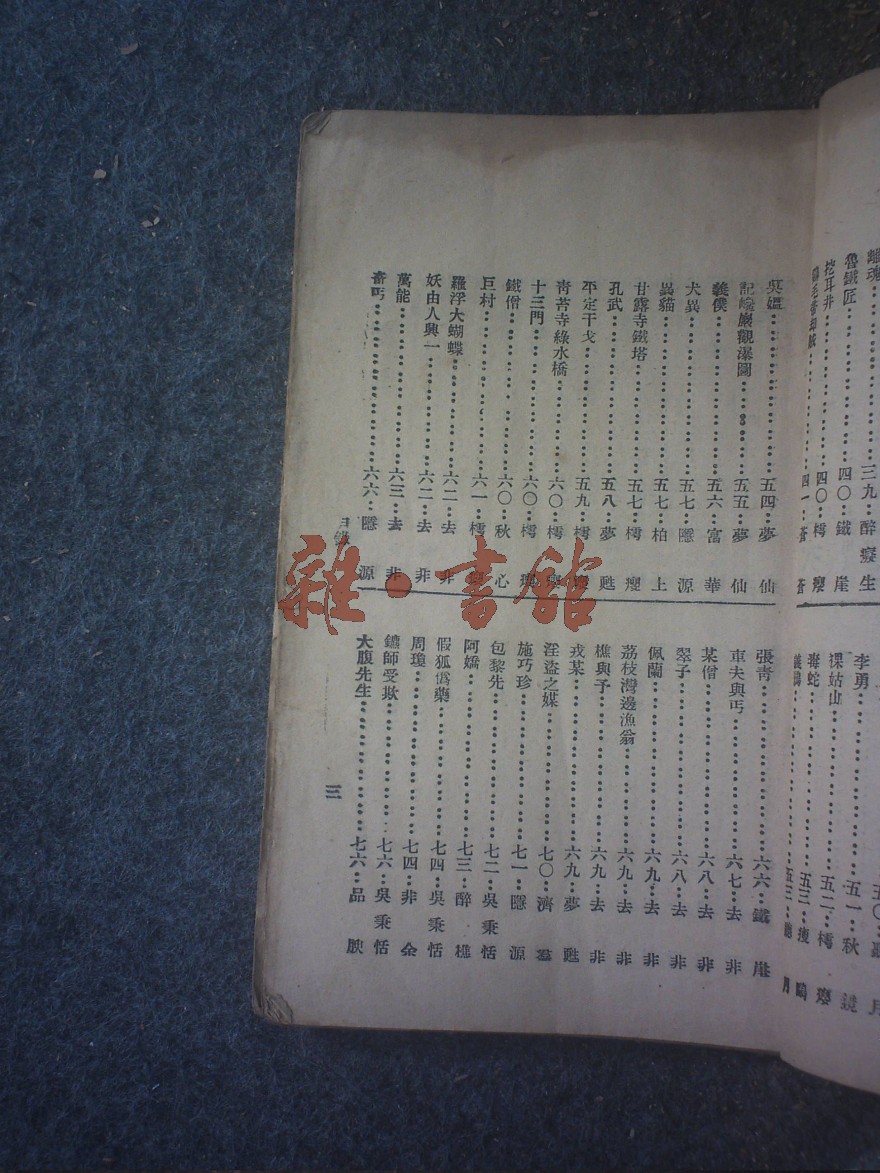 離魂三九醉癡生
魯鐵匠四〇鐵崖
挖耳井四〇樗癭
四一蒼蒼
五〇
李勇五一秋鏡
裸姑山五二樗癭
毒蛇五三瘦鷗
五三月
吳媼五四夢仙
記巖觀瀑圖五五夢仙
義僕五六富華
犬異五七隱源
異貓五七柏土
甘露寺鐵塔五七樗癭
孔武五八夢甦
平定干戈五九樗癭
靑苔寺綠水橋六〇樗癭
十三門六〇樗癭
鐵僧六〇秋心
巨村六一樗癭
羅浮大蝴蝶六二去非
妖由人興一六二去非
萬能六三去非
奇丐六六隱源
張靑六六鐵崖
車夫與丐六七去非
某僧六八去非
翠子六八去非
佩蘭六九去非
荔枝灣邊漁翁六九去非
樵與予六九去非
戎某六九夢甦
淫盜之媒七〇濟羣
施巧珍七一隱源
包黎先七二吳秉恬
阿嬌七三醉樵
假狐僞藥七四吳秉恬
周瓊七四非金
鑣師受欺七六吳秉恬
大腹先生七六品腴
目錄
三
雜·書館